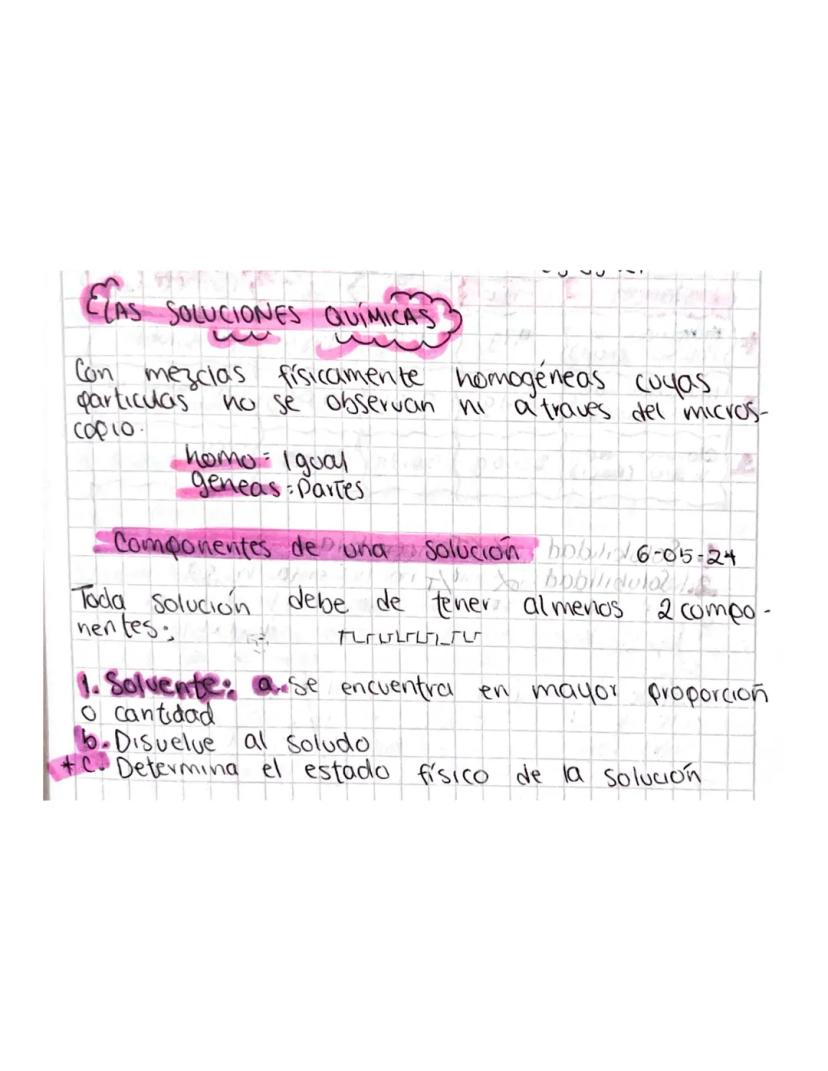 LAS SOLUCIONES QUÍMICAS
Con mezclas físicamente homogéneas cuyas
particulas no se observan ni a traves del micros-
copio.
homo = Igual
geneas = Partes
Componentes de una solución 6-05-24
Toda solución debe de tener almenos 2 compo-
nentes:
1. Solvente: a. Se encuentra en mayor proporción
o cantidad
b. Disuelve al soludo
* c. Determina el estado físico de la solución